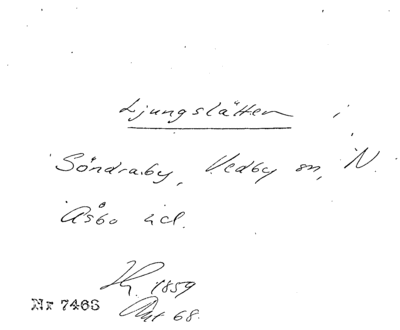 Ljungslätten i
Söndraby, Vedby sn, N.
Åsbo hd.
1859
Nr 7463 Akt 68.